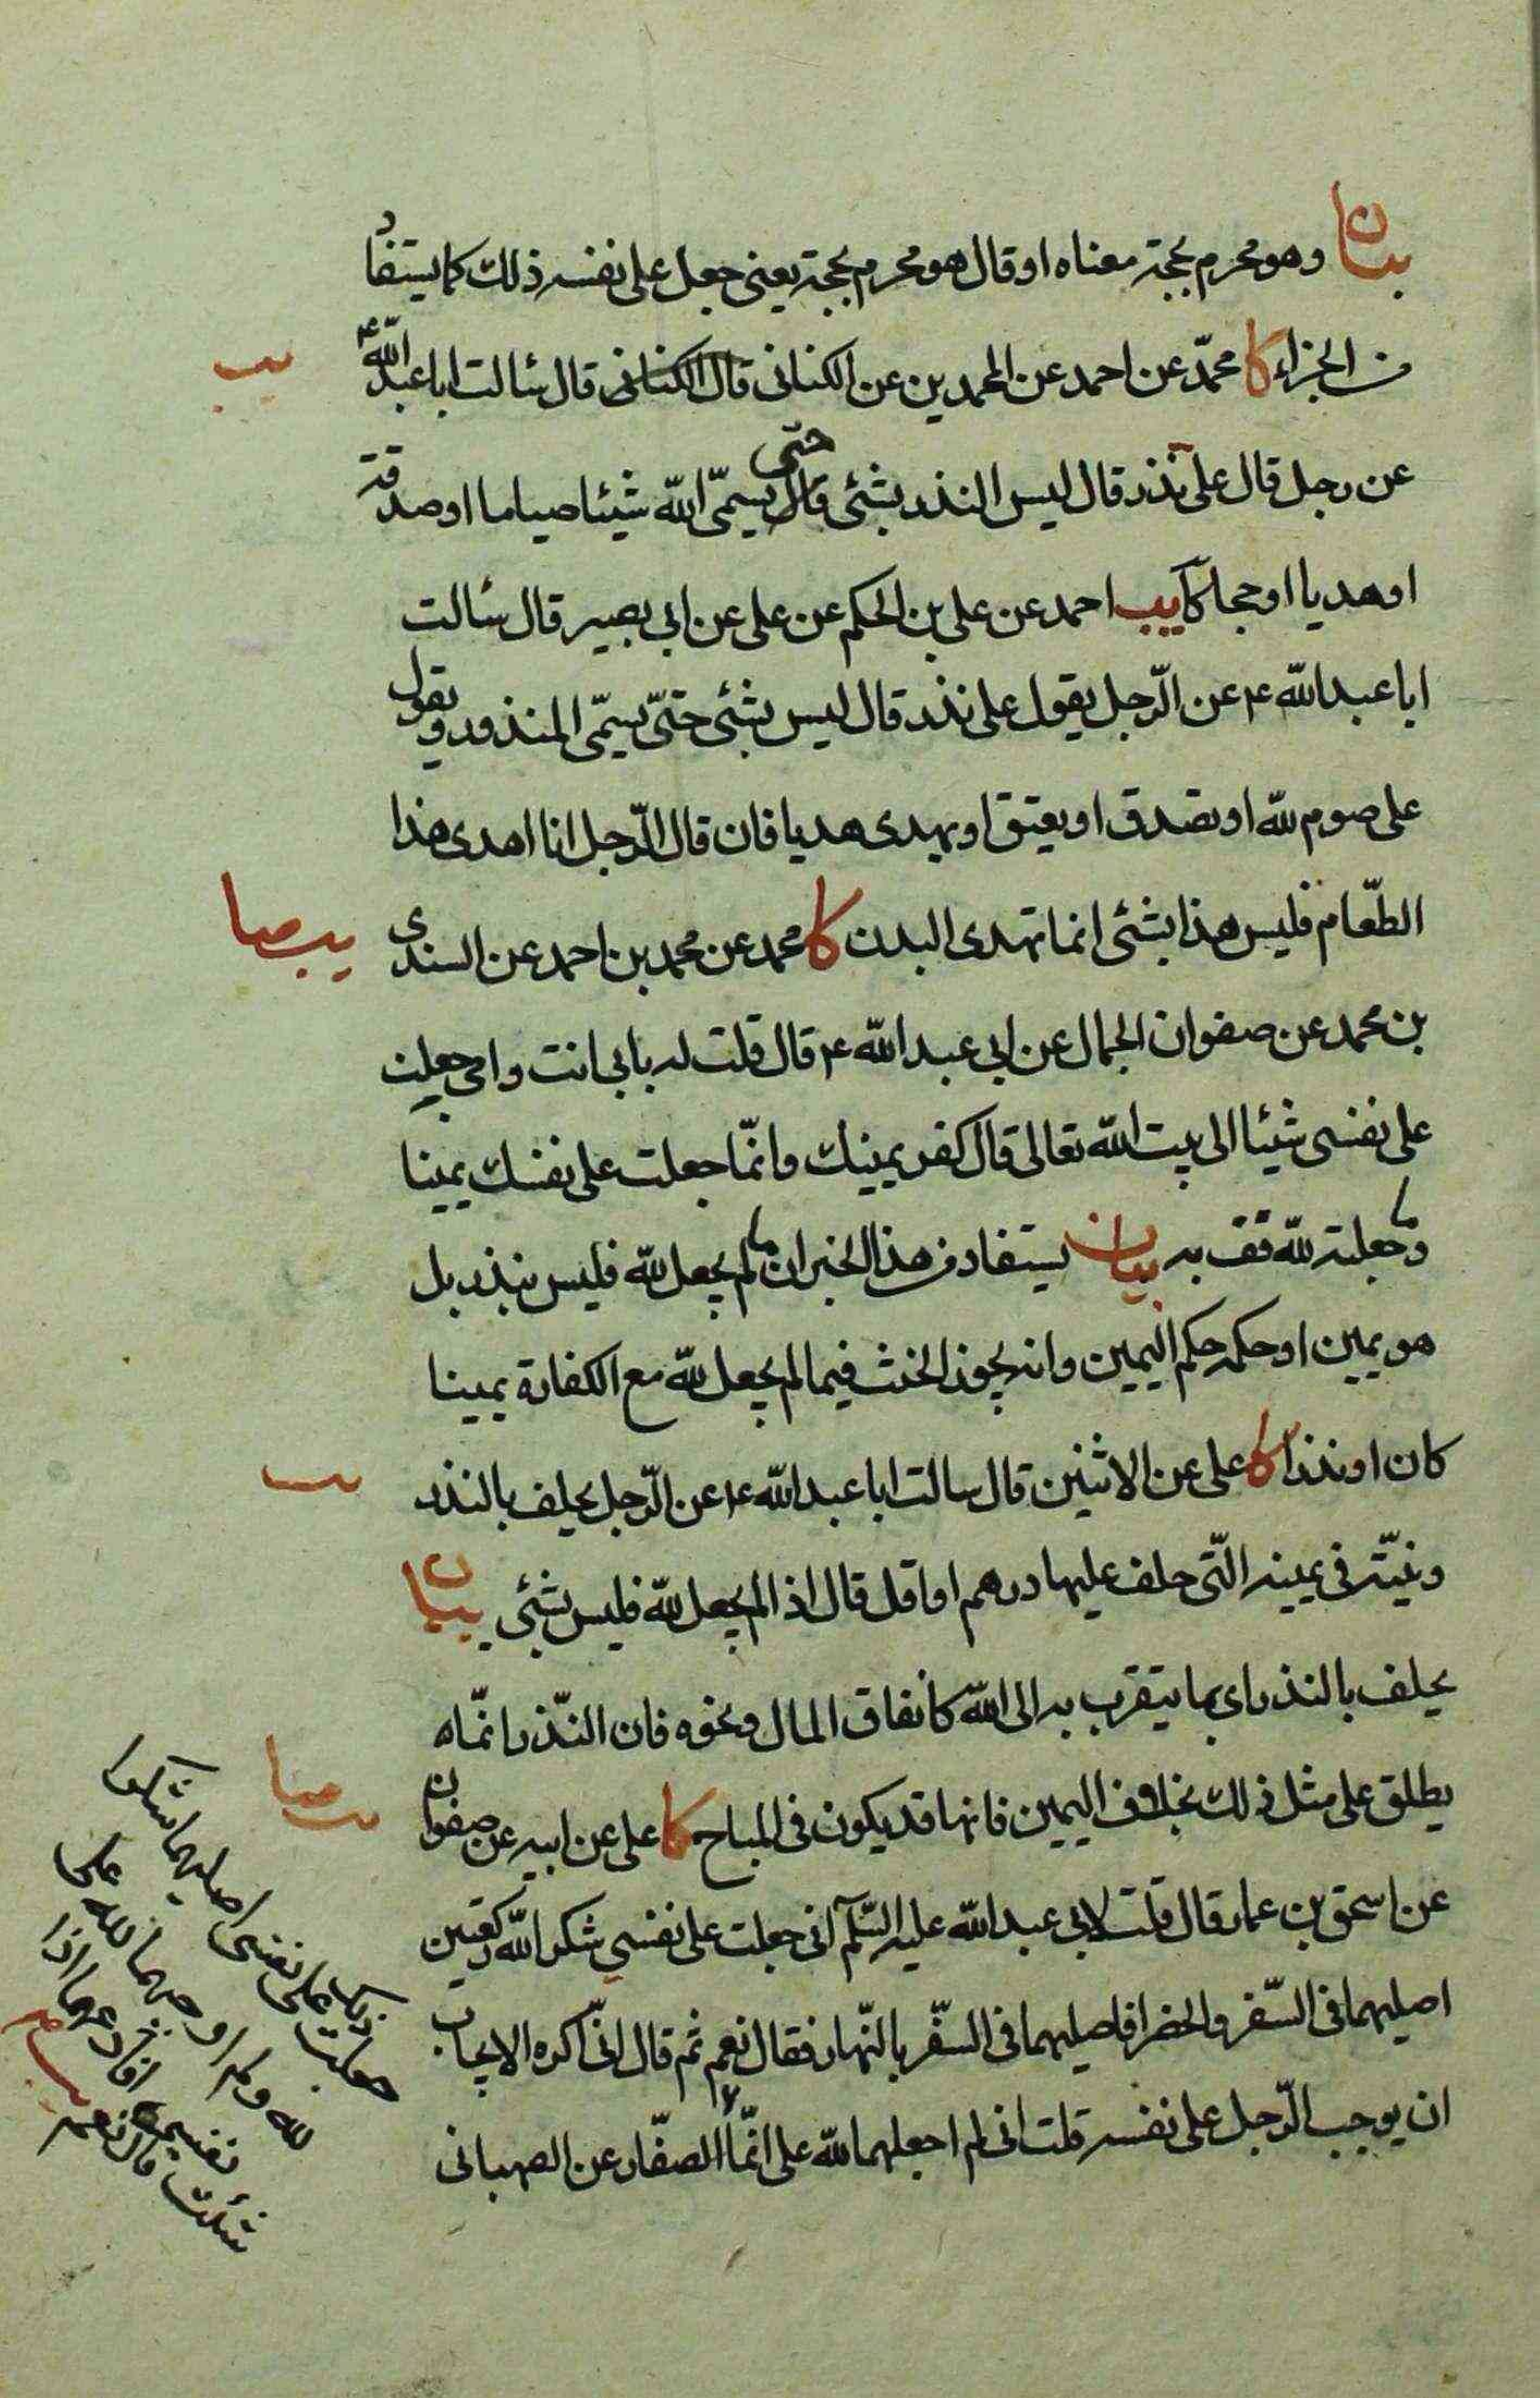 بيان وهو محرم بحجة معناه او قال هو محرم بحجة يعنى جعل على نفسه ذلك كما يستفاد
من الجزاء كا محمّد عن احمد عن المحمدين عن الكنانى قال الكنانى قال سئالت ابا عبد اللّه ع
يب
عن رجل قال على نذر قال ليس النذر بشئى قال حتى يسمّى اللّه شيئا صياما او صدقة
او هديا او حجا كا يب احمد عن على بن الحكم عن على عن ابى بصير قال سئالت
ابا عبد اللّه ع عن الرّجل يقول على نذر قال ليس بشئى حتىّ يسمّى المنذور و يقول
على صوم للّه او تصدق او يعتق او يهدى هديا فان قال الرّجل انا اهدى هذا
الطّعام فليس هذا بشئى انما تهدى البدن كا محمد عن محمد بن احمد عن السندى
يب صا
بن محمد عن صفوان الجمال عن ابى عبد اللّه ع قال قلت له بابى انت وامى جعلت
على نفسى شيئا الى بيت اللّه تعالى قال كفر يمينك وانمّا جعلت على نفسك يمينا
وما جعلته للّه فف به بيان يستفاد من هذا الخبر ان ما لم يجعل للّه فليس بنذر بل
هو يمين او حكمه حكم اليمين وانه يجوز الحنث فيما لم يجعل للّه مع الكفارة يمينا
كان او نذرا كا على عن الاثنين قال سالت ابا عبد اللّه ع عن الرّجل يحلف بالنذر
يب
ونيتّه فى يمينه التّى حلف عليها درهم او اقل قال اذا لم يجعل للّه فليس بشئى بيان
يحلف بالنذر اى بما يتقرب به الى اللّه كانفاق المال ونحوه فان النّذر انمّاه
يطلق على مثل ذلك بخلاف اليمين فانها قد يكون فى المباح كا على عن ابيه عن صفوان
يب صا
عن اسحق بن عمار قال قلت لابى عبد اللّه عليه السّلم انى جعلت على نفسي شكر اللّه ركعتين
اصليهما فى السّفر والحضر افاصليهما فى السّفر بالنّهار فقال نعم ثم قال انّى اكره الايجاب
ان يوجب الرّجل على نفسه قلت انى لم اجعلهما للّه على انمّا الصفّار عن الصهبانى
جعلت ذلك على نفسى اصليهما شكرا
للّه ولم اوجبهما للّه على
نفسى افادعهما اذا
شئت قال نعم